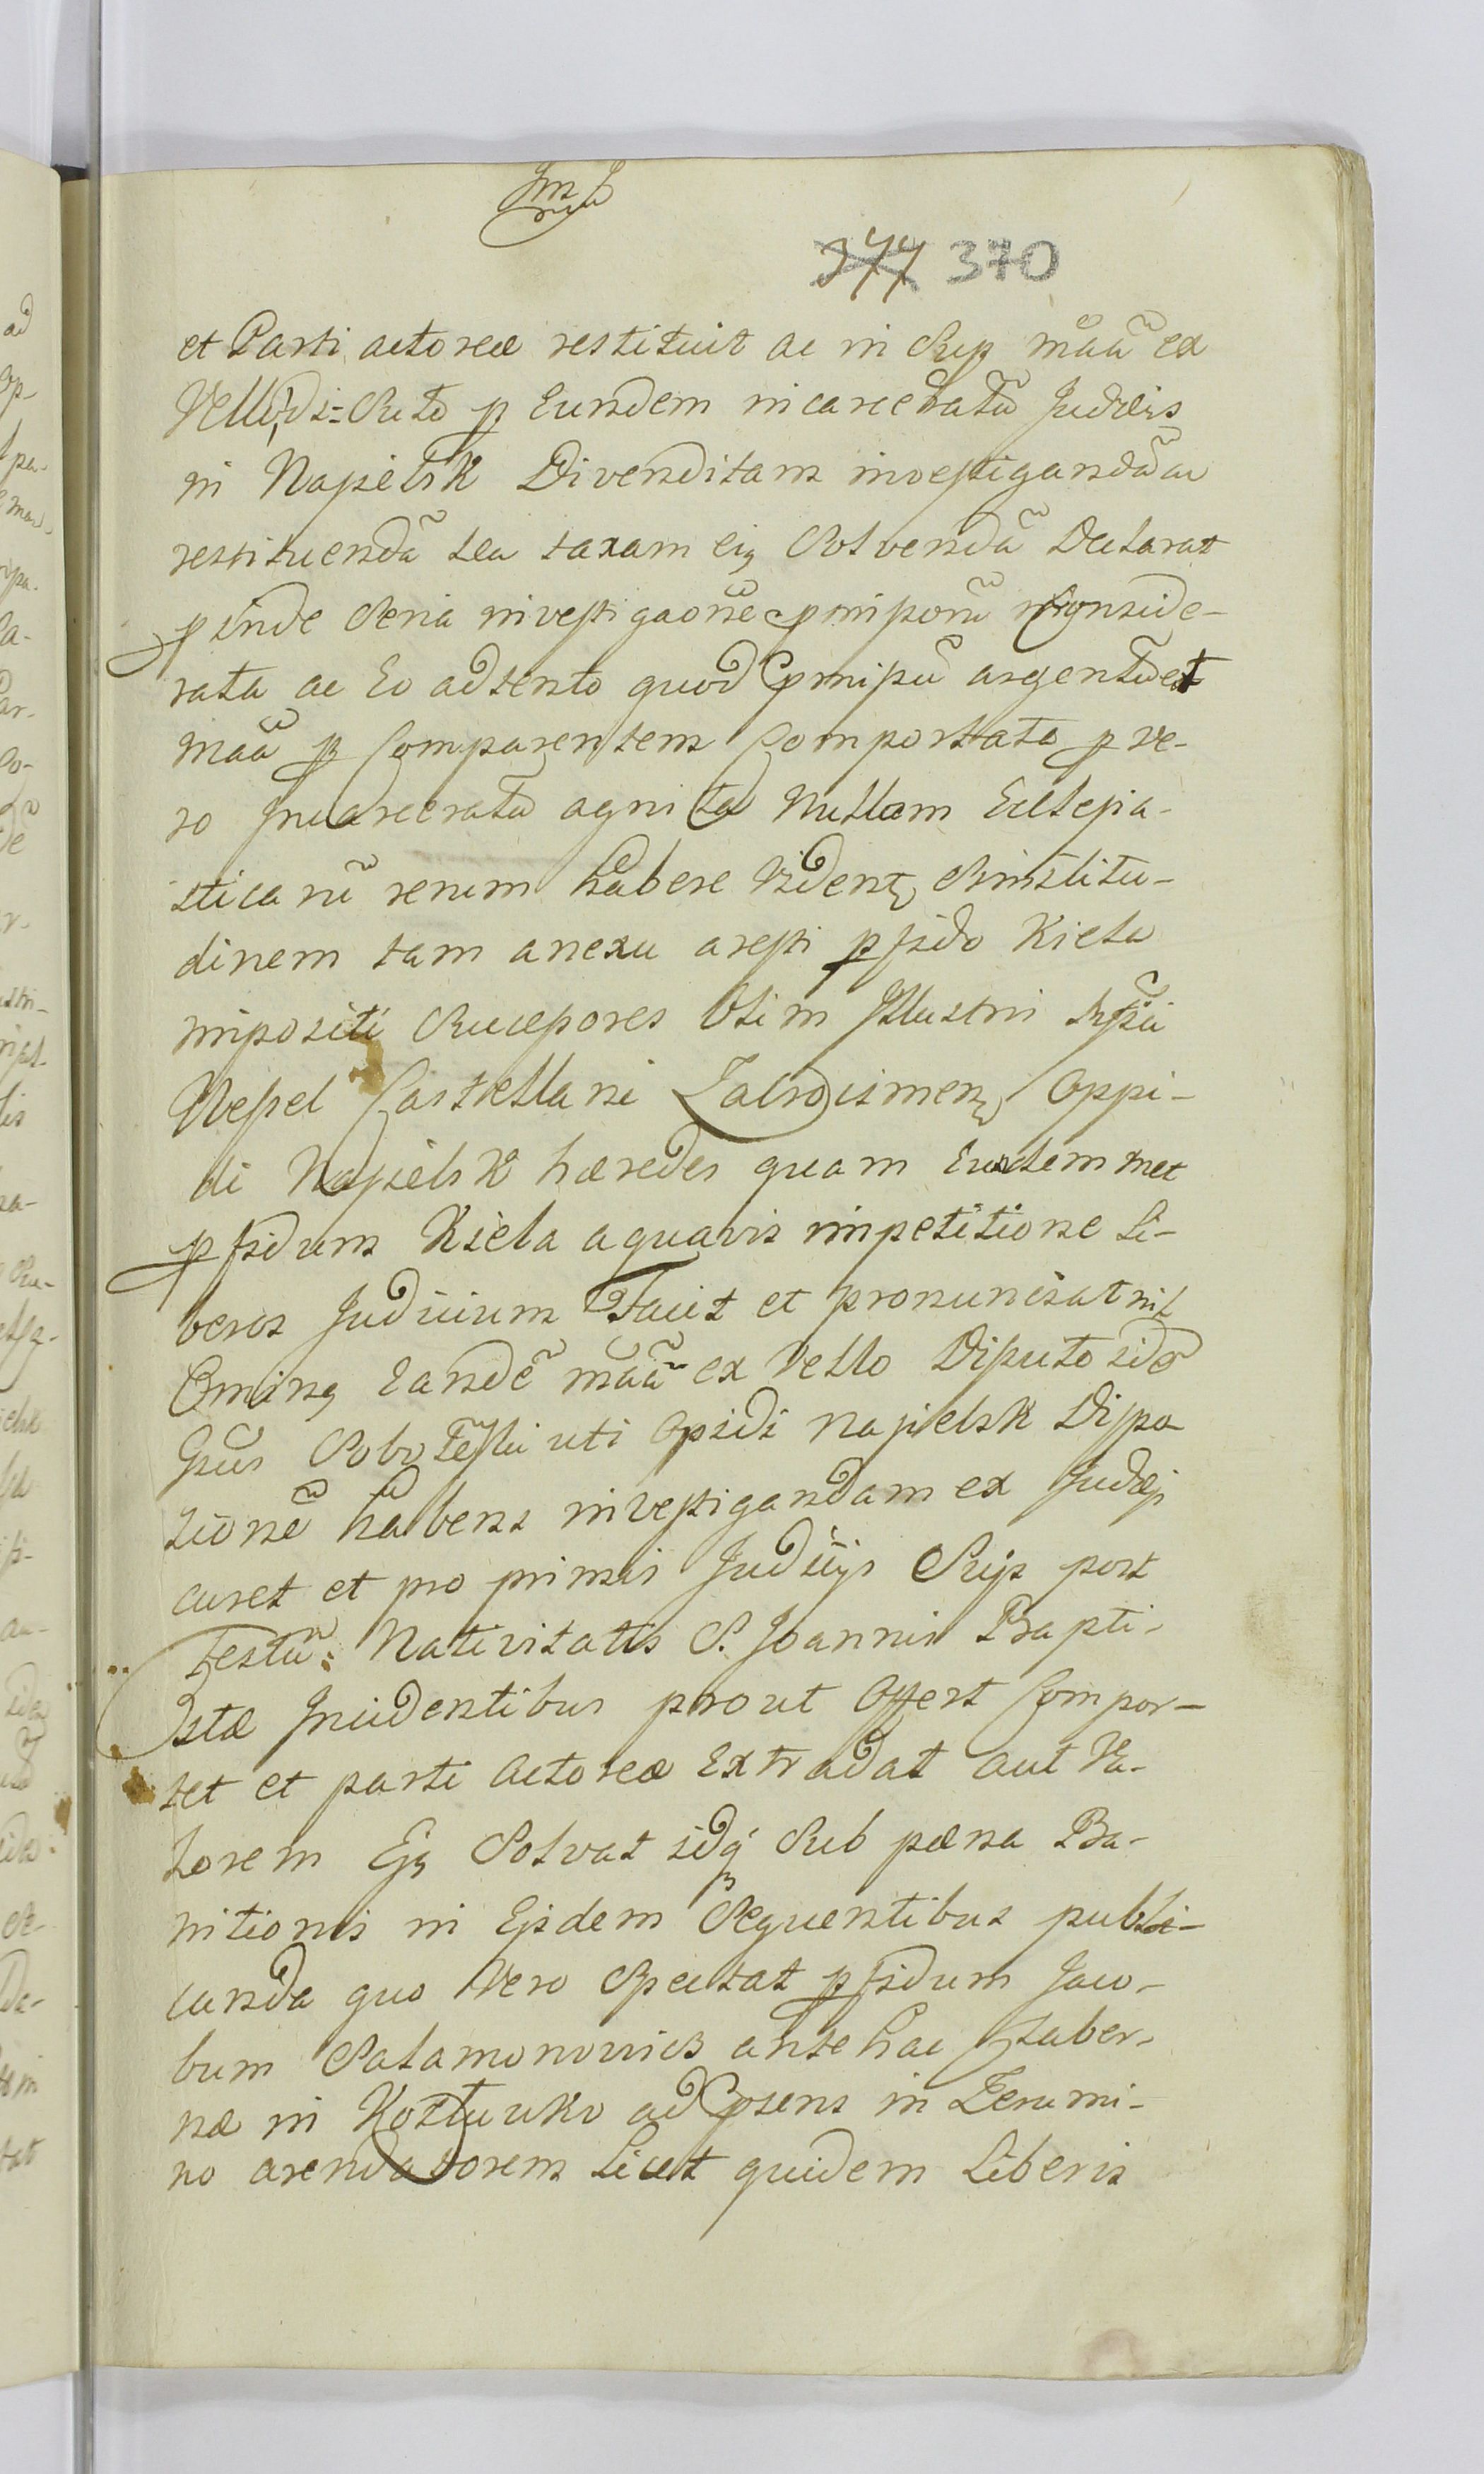 377 370
et Parti actoreæ restituit ac in Sup mãã ex
Vello, Di=Suto p Eundem incarceratũ Judæis
in Nasielsk Divenditam investigandã ac
restituendã seu taxam eiɡ Solvendã Declarat
pinde Seria investigaõne
rata ac Eo adtento quod argentũ et
mãã p Comparentem Comportata p ve-
ro Incarceratũ agnita Nullam Ecclesia-
sticarũ rerum habere Videntɡ Similitu-
dinem tam a nexu aresti pfido Kiela
impositi Succesores Olim Illustri
Wessel Castellani Zakroczimenɡ Oppi-
di Nasielsk hæredes quam Eundemmet
pfidum Kiela a quavis impetitione Li-
beros Judicium Facit et pronunciat nil
Ominɡ Eandẽ mãã ex Vello Disuto
uti Opidi Nasielsk Dispo
zitionẽ habens investigandam ex Judæis
curet et pro primis Judiciis Sup post
Festũ: Nativitatis S. Joannis Bapti-
stæ Incidentibus prout Offert Compor-
tet et parti Actoreæ Extradat aut Va-
lorem Ejɡ Solvat idqɜ Sub pæna Ba-
nitionis in Eisdem Sequentibus publi-
canda quo Vero Spectat pfidum Jaco-
bum Salamonowicz antehac Taber-
næ in ad psens in
no arendatorem Licet quidem Liberis